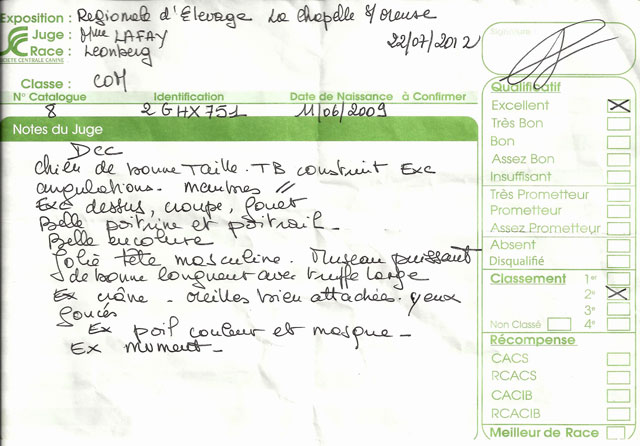 Exposition : Regionale d'Elevage La Chapelle S/Oreuse
Juge : Mme LAFAY 22/07/2012
Race : Leonberg
SOCIÉTÉ CENTRALE CANINE
Classe : COM
N° Catalogue Identification Date de Naissance à Confirmer
8 2GHX751 11/06/2009
Notes du Juge
Dcc
Chien de bonne Taille. TB construit Exc
angulations - membres //
Exc dessus, croupe, fouet
Belle poitrine et poitrail -
Belle encolure
Jolie tête masculine. Museau puissant
de bonne longueur avec truffe large
Ex crâne - oreilles bien attachées. yeux
foncés
Ex poil couleur et masque -
Ex mvment -
Signature
Qualificatif
Excellent X
Très Bon
Bon
Assez Bon
Insuffisant
Très Prometteur
Prometteur
Assez Prometteur
Absent
Disqualifié
Classement 1er
2e X
3e
Non Classé 4e
Récompense
CACS
RCACS
CACIB
RCACIB
Meilleur de Race